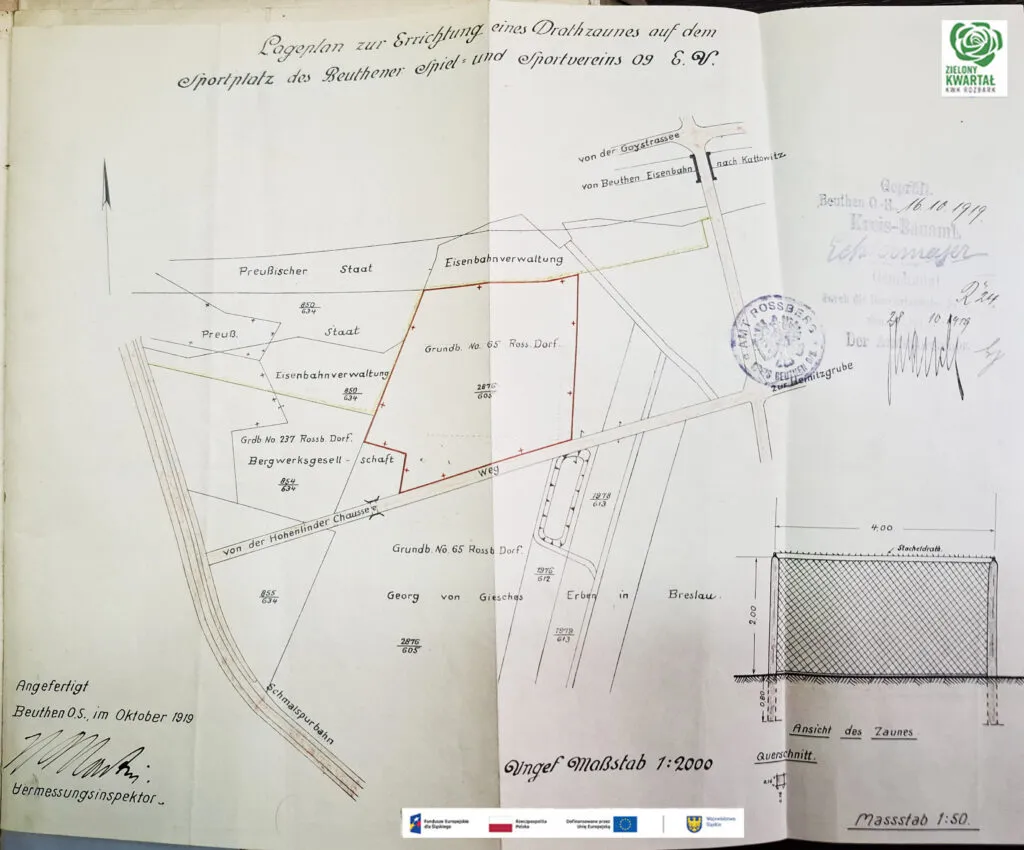 Lageplan zur Errichtung eines Drathzaunes auf dem
Sportplatz des Beuthener Spiel- und Sportvereins 09 E.V.
ZIELONY
KWARTAŁ
KWK ROZBARK
von der Goystrassee
von Beuthen Eisenbahn nach Kattowitz
Geprüft.
Beuthen O.-S. 16.10.1919.
Kreis-Bauamt.
Preußischer Staat
Eisenbahnverwaltung
850
634
Preuß. Staat
Eisenbahnverwaltung
850
634
Grundb. No. 65 Ross. Dorf.
2876
605
AMT ROSSBERG
KREIS BEUTHEN O/S
28 10 1919
Der
zur Heinitzgrube
Grdb. No. 237 Rossb. Dorf.
Bergwerksgesell-schaft
854
634
Weg
von der Hohenlinder Chaussee
1878
613
Grundb. No. 65 Rossb. Dorf.
1976
612
855
634
Georg von Giesches Erben in Breslau.
2876
605
1979
613
4.00
Stacheldrath.
2.00
0.80
Ansicht des Zaunes
Querschnitt.
Massstab 1:50.
Schmalspurbahn
Angefertigt
Beuthen O.S., im Oktober 1919
Vermessungsinspektor.
Ungef Maßstab 1:2000
Fundusze Europejskie
dla Śląskiego
Rzeczpospolita
Polska
Dofinansowane przez
Unię Europejską
Województwo
Śląskie